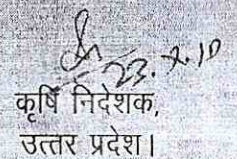 23.7.10
कृषि निदेशक,
उत्तर प्रदेश।